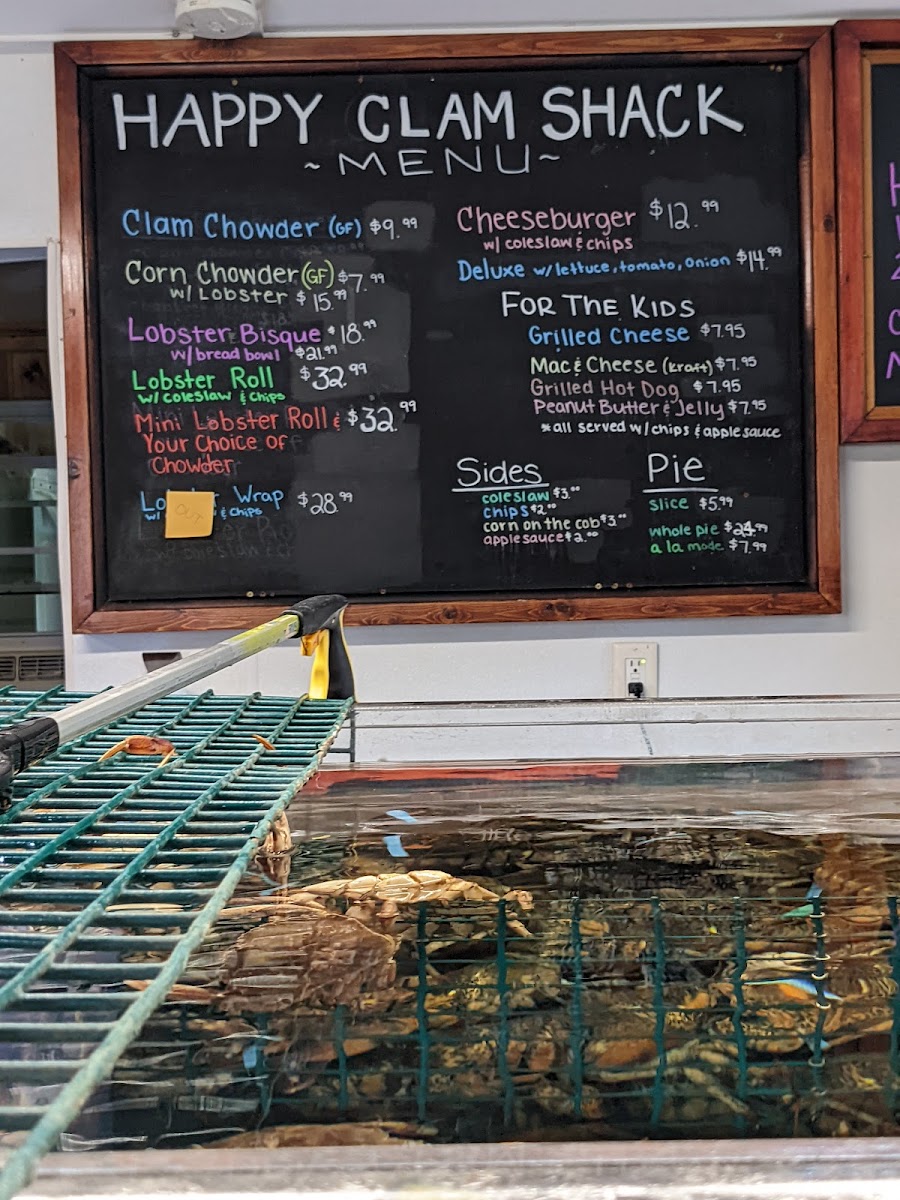 HAPPY CLAM SHACK
~MENU~
Clam Chowder (GF) $9.99
Corn Chowder (GF) $7.99
w/ Lobster $15.99
Lobster Bisque $18.99
w/bread bowl $21.99
Lobster Roll $32.99
w/ coleslaw & chips
Mini Lobster Roll & $32.99
Your Choice of
Chowder
Wrap $28.99
& chips
OUT
Cheeseburger $12.99
w/ coleslaw & chips
Deluxe w/lettuce, tomato, onion $14.99
FOR THE KIDS
Grilled Cheese $7.95
Mac & Cheese (kraft) $7.95
Grilled Hot Dog $7.95
Peanut Butter & Jelly $7.95
*all served w/chips & applesauce
Sides
coleslaw $3.00
chips $2.00
corn on the cob $3.00
applesauce $2.00
Pie
slice $5.99
whole pie $24.99
a la mode $7.99